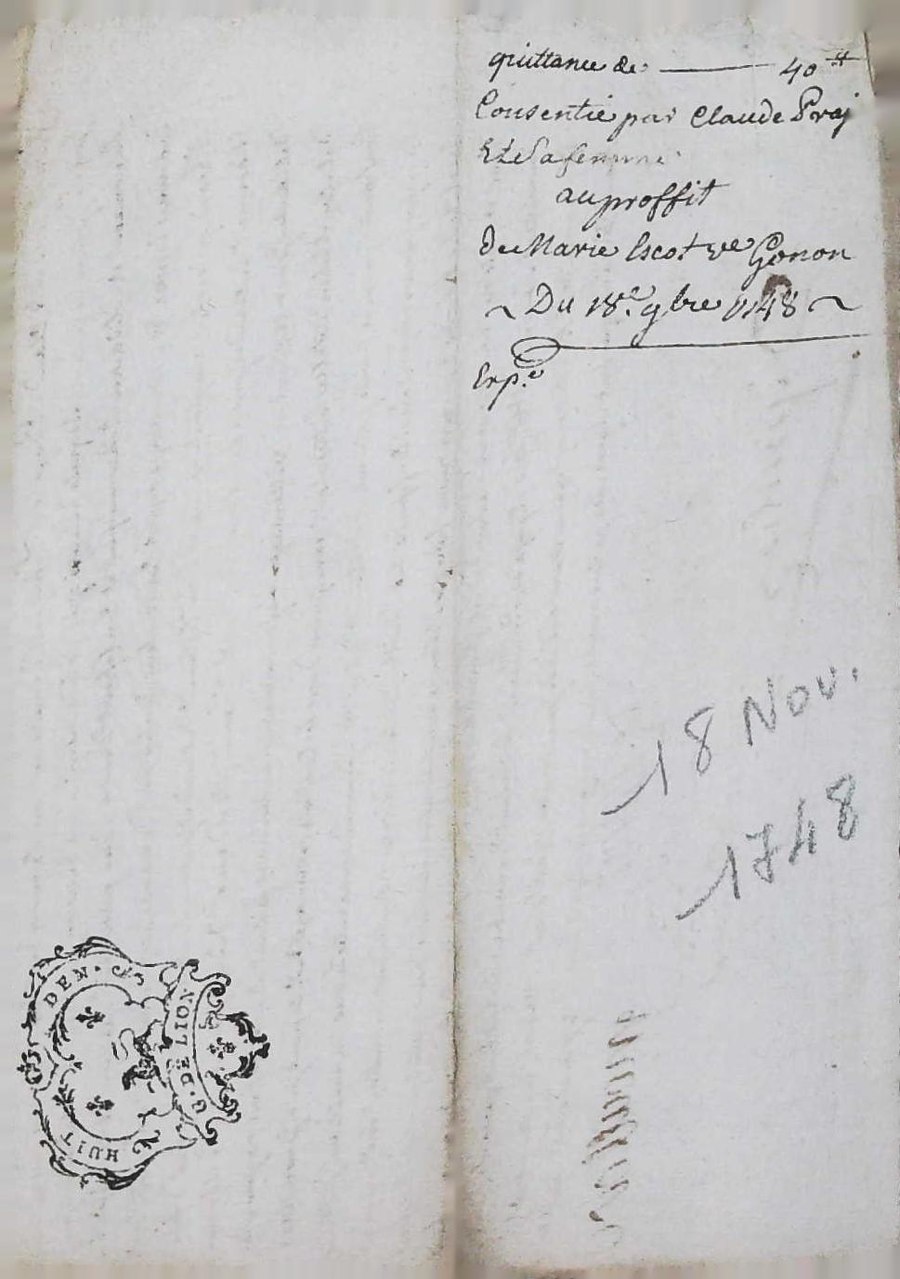 quittance de ——— 40ᵗᵗ
Consentie par Claude Praj
Et Sa femme
au proffit
de Marie Escot vᵉ Gonon
~ Du 18ᵉ. 9bre 1748 ~
Expᵉ
18 Nov.
1748
G. DE LION
HUIT DEN.